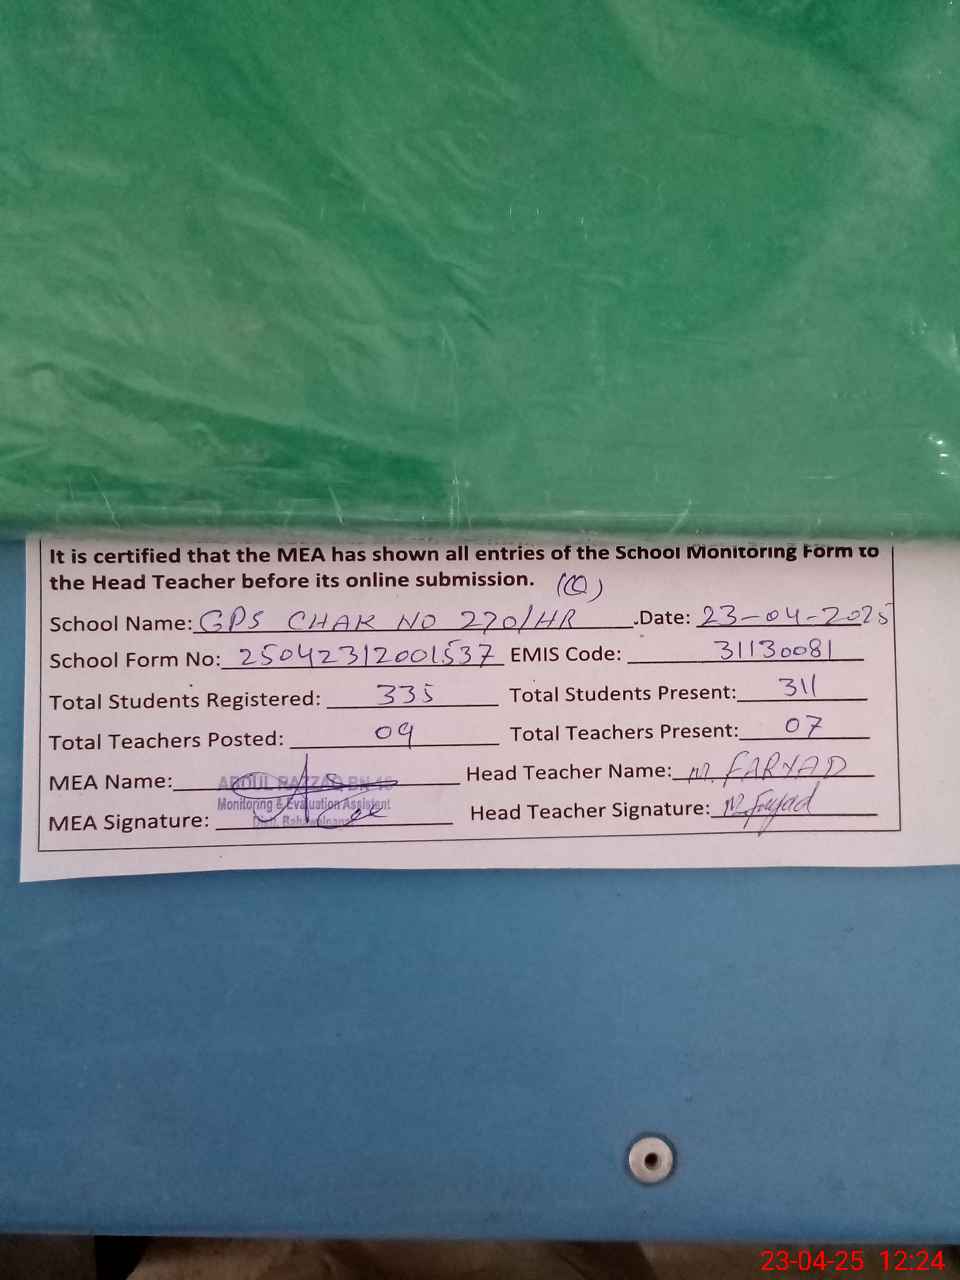 It is certified that the MEA has shown all entries of the School Monitoring Form to
the Head Teacher before its online submission. (Q)
School Name: GPS CHAK NO 270/HR .Date: 23-04-2025
School Form No: 25042312001537 EMIS Code: 31130081
Total Students Registered: 335 Total Students Present: 311
Total Teachers Posted: 09 Total Teachers Present: 07
MEA Name: ABDUL RAZZAQ BN-16 Head Teacher Name: M. FARYAD
Monitoring & Evaluation Assistent
MEA Signature: Head Teacher Signature: M. Faryad
23-04-25 12:24